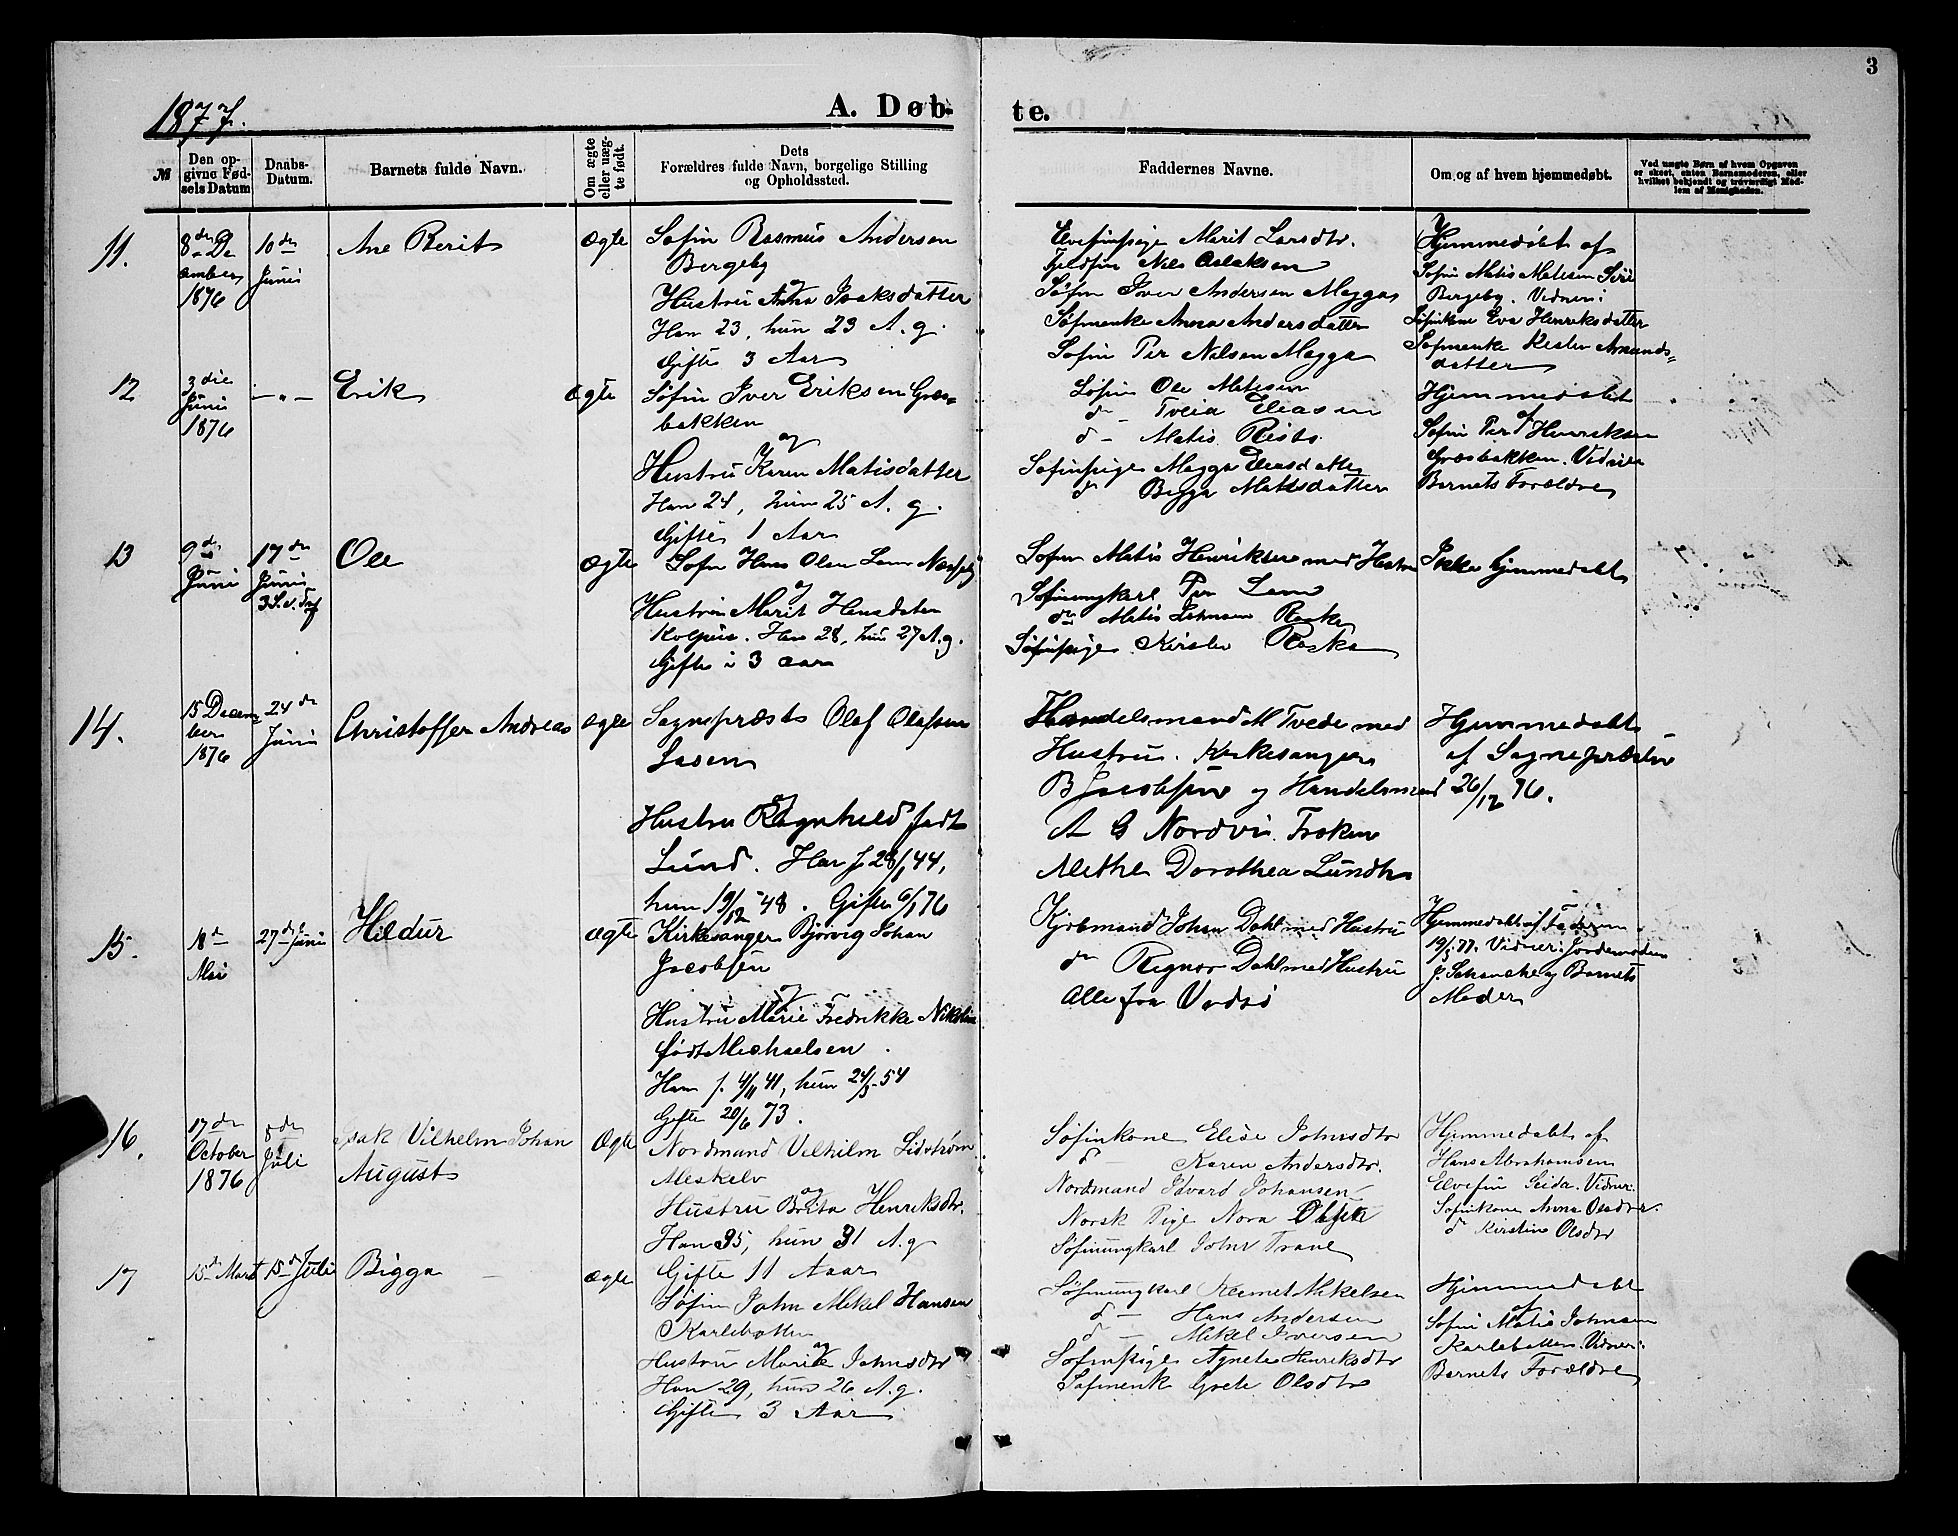 3
1877.
A. Døb-
te.
№
Den op-
givne Fød-
sels Datum
Daabs-
Datum.
Barnets fulde Navn.
Om ægte
eller uæg-
te født.
Dets
Forældres fulde Navn, borgelige Stilling
og Opholdssted.
Faddernes Navne.
Om og af hvem hjemmedøbt.
Ved uægte Børn af hvem Opgaven
er skeet, enten Barnemoderen, eller
hvilket bekjendt og troværdigt Med-
lem af Menigheden.
11.
8de De
cember
1876
10de
Juni
Ane Berit
Ægte
Søfin Rasmus Andersen
Bergeby
og
Hustru Anna Isaksdatter
Han 23, hun 23 A. g.
Gifte 3 Aar
Elvefinpige Marit Larsdtr.
Fjeldfin Nils Aslaksen
Søfin Iver Andersen Magga
Søfinenke Anna Andersdatter
Søfin Per Nilsen Magga
Hjemmedøbt af
Søfin Matis Matisen
Bergeby. Vidner:
Søfinkone Eva Henriksdatter
Søfinenke Kirsten Amunds-
datter
12
3die
Juni
1876
— " —
Erik
Ægte
Søfin Iver Eriksen Græs-
bakken
og
Hustru Karen Matisdatter
Han 24, hun 25 A. g.
Gifte 1 Aar
Søfin Ole Matisen
do - Eliasen
do - Matis
Søfinpige Magga Eliasdatter
do Bigga Matisdatter
Hjemmedøbt
af
Søfin Per Henriksen
Græsbakken. Vidner
Barnets Forældre
13
9de
Juni
17de
Juni
3 S. e. Tref
Ole
Ægte
Søfin Hans Olsen
og
Hustru Marit Hansdatter
Han 28, hun 27 A. g.
Gifte i 3 Aar
Søfin Matis Henriksen med Hustru
Søfinungkarl Per
do Matis Johnsen
Søfinpige Kirsten
Ikke hjemmedøbt
14.
15 Decem-
ber
1876
24de
Juni
Christoffer Andreas
Ægte
Sognepræst Olaf Olafsen
og
Hustru Ragnhild født
Lund. Han f. 28/1 44,
hun 19/12 48. Gifte 6/1 76
Handelsmand M Tvede med
Hustru. Kirkesanger
B Jacobsen og Handelsmand
A G Nordvi. Frøken
Methe Dorothea Lundh
Hjemmedøbt
af Sognepræsten
26/12 76.
15.
18de
Mai
27de Juni
Hildur
Ægte
Kirkesanger Bjørvig Johan
Jacobsen
og
Hustru Marie Fredrikke Nikoline
født Michaelsen
Han f. 4/11 41, hun 24/3 54
Gifte 20/6 73.
Kjøbmand Johan Dahl med Hustru
do Regnor Dahl med Hustru
Alle fra Vadsø
Hjemmedøbt af Faderen
19/5 77. Vidner: Jordemoderen
J. Schanche og Barnets
Moder
16.
17de
October
1876
8de
Juli
Isak Vilhelm Johan
August
Ægte
Nordmand Vilhelm Sidstrøm
Meskelv
og
Hustru Brita Henriksdtr.
Han 35, hun 31 A. g
Gifte 11 Aaar
Søfinkone Elise Johnsdtr
do - Karen Andersdtr.
Nordmand Edvard Johansen
Norsk Pige Nora Olsen
Søfinungkarl John Trane
Hjemmedøbt af
Hans Abrahamsen
Elvefin Seida. Vidner:
Søfinkone Anna Olsdtr.
do Kirstine Olsdtr
17
15de Marts
15de Juli
Bigga
Ægte
Søfin John Mikel Hansen
Karlebotten
og
Hustru Marit Johnsdtr
Han 29, hun 26 A. g.
Gifte 3 Aar
Søfinungkarl Klemet Mikelsen
do - Hans Andersen
do - Mikel Iversen
Søfinpige Agnete Henriksdtr
Søfinenke Grete Olsdtr
Hjemmedøbt
af
Søfin Matis Johnsen
Karlebotten. Vidner:
Barnets Forældre